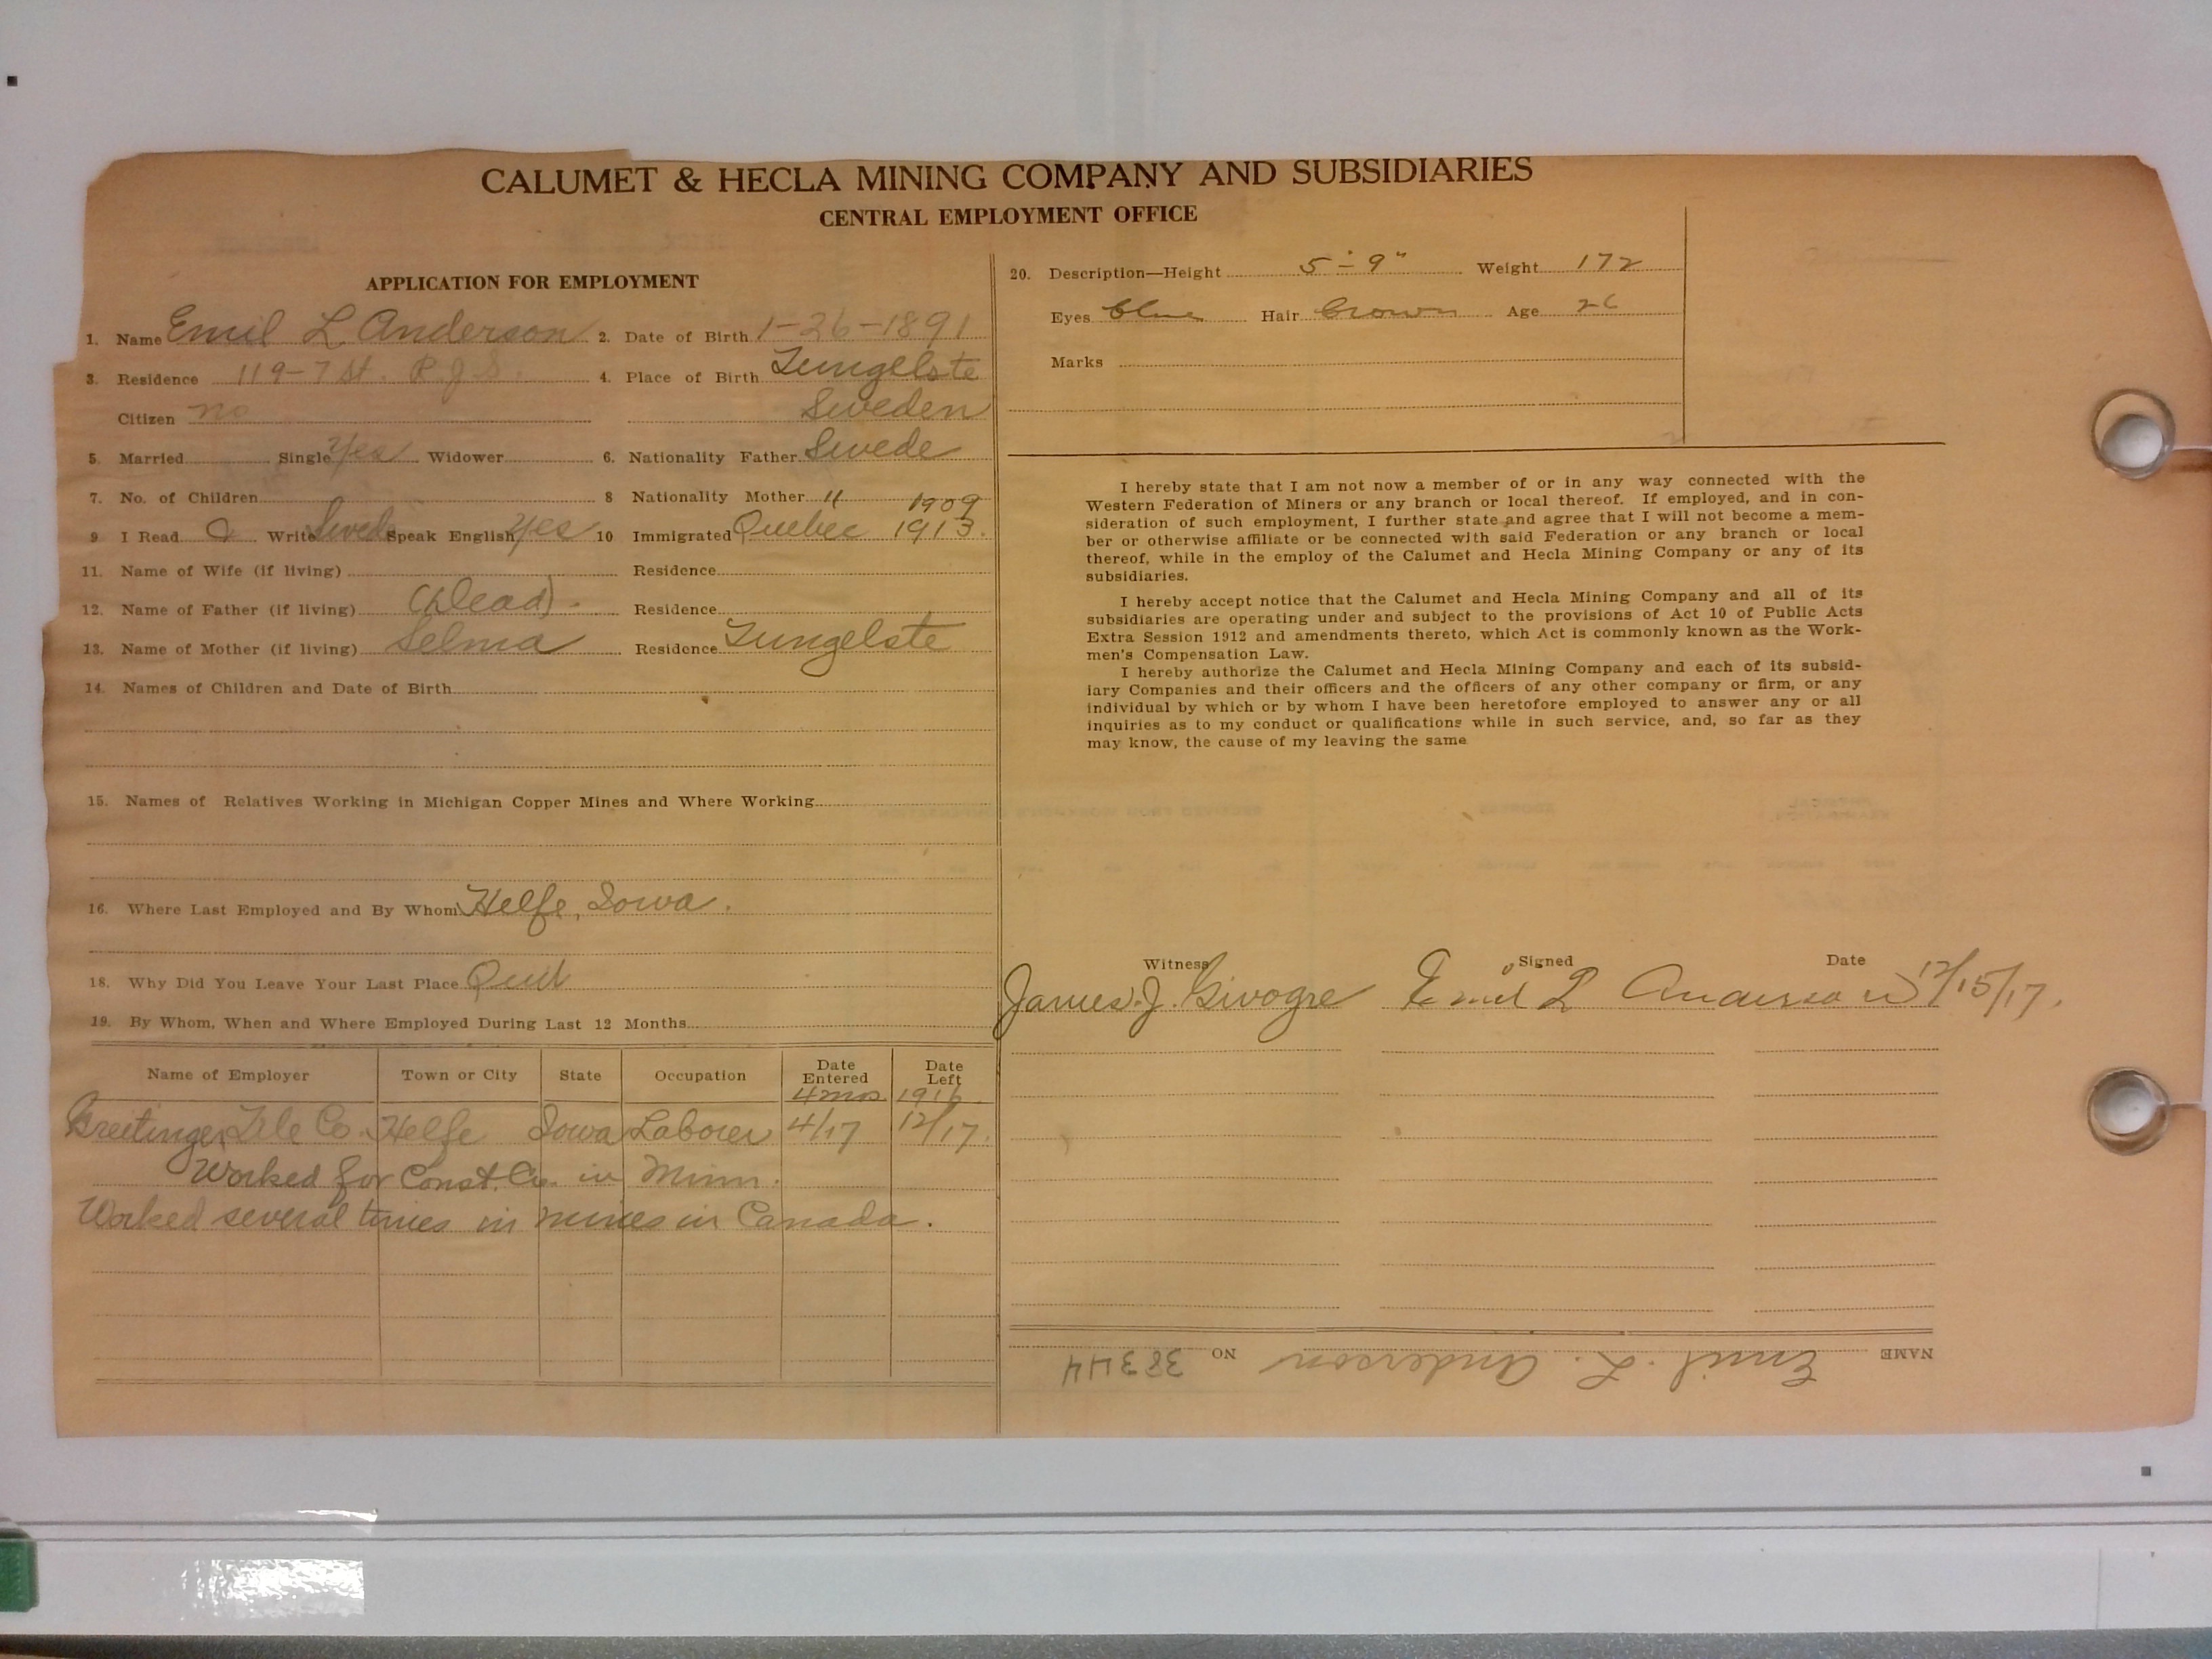 CALUMET & HECLA MINING COMPANY AND SUBSIDIARIES
CENTRAL EMPLOYMENT OFFICE
APPLICATION FOR EMPLOYMENT
1. Name Emil L. Anderson 2. Date of Birth 1-26-1891
3. Residence 119-7 St. 4. Place of Birth Tungelste
Citizen no Sweden
5. Married Single Yes Widower 6. Nationality Father Swede
7. No. of Children 8 Nationality Mother "
1909
9 I Read Write Swede Speak English Yes 10 Immigrated Quebec 1913.
11. Name of Wife (if living) Residence
12. Name of Father (if living) (Dead). Residence
13. Name of Mother (if living) Selma Residence Tungelste
14. Names of Children and Date of Birth
15. Names of Relatives Working in Michigan Copper Mines and Where Working
16. Where Last Employed and By Whom Helfe, Iowa.
18. Why Did You Leave Your Last Place Quit
19. By Whom, When and Where Employed During Last 12 Months
Name of Employer Town or City State Occupation Date Entered Date Left
4 mos 1916.
Tile Co. Helfe Iowa Laborer 4/17 12/17.
Worked for Const. Co. in Minn.
Worked several times in mines in Canada.
20. Description—Height 5-9" Weight 172
Eyes blue Hair brown Age 26
Marks
I hereby state that I am not now a member of or in any way connected with the
Western Federation of Miners or any branch or local thereof. If employed, and in con-
sideration of such employment, I further state and agree that I will not become a mem-
ber or otherwise affiliate or be connected with said Federation or any branch or local
thereof, while in the employ of the Calumet and Hecla Mining Company or any of its
subsidiaries.
I hereby accept notice that the Calumet and Hecla Mining Company and all of its
subsidiaries are operating under and subject to the provisions of Act 10 of Public Acts
Extra Session 1912 and amendments thereto, which Act is commonly known as the Work-
men's Compensation Law.
I hereby authorize the Calumet and Hecla Mining Company and each of its subsid-
iary Companies and their officers and the officers of any other company or firm, or any
individual by which or by whom I have been heretofore employed to answer any or all
inquiries as to my conduct or qualifications while in such service, and, so far as they
may know, the cause of my leaving the same
Witness Signed Date
James J. Emil L Anderson 12/15/17.
NAME Emil L. Anderson NO 38344